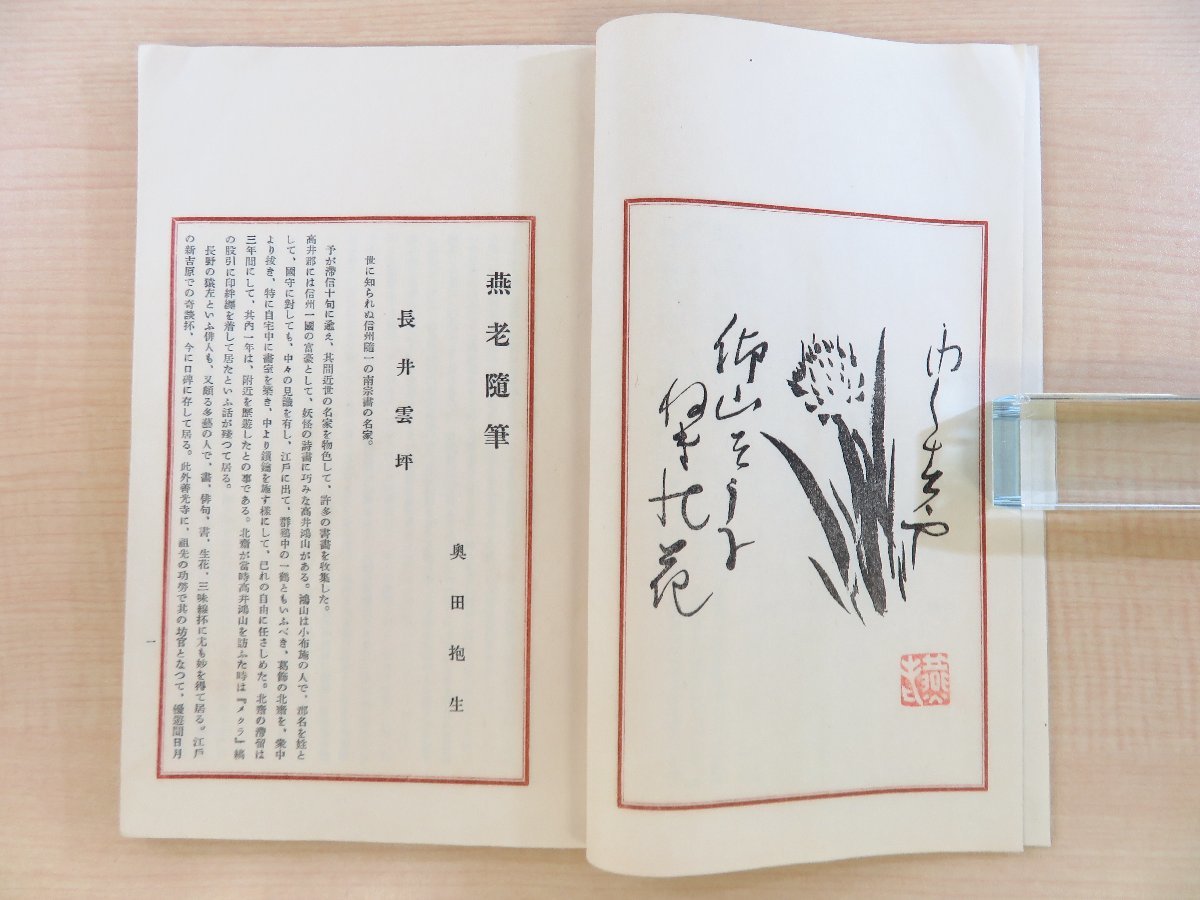 燕老隨筆
奥田抱生
長井雲坪
世に知られぬ信州隨一の南宗畫の名家。
予が滯信十旬に逾え、其間近世の名家を物色して、許多の書畫を收集した。
高井郡には信州一國の富豪として、妖怪の詩畫に巧みな高井鴻山がある。鴻山は小布施の人で、郡名を姓と
して、國守に對しても、中々の見識を有し、江戸に出て、群鷄中の一鶴ともいふべき、葛飾の北齋を、衆中
より拔き、特に自宅中に畫室を築き、中より鎖鑰を施す樣にして、己れの自由に任さしめた。北齋の滯留は
三年間にして、其內一年は、附近を歷遊したとの事である。北齋が當時高井鴻山を訪ふた時は『メクラ』縞
の股引に印絆纏を着して居たといふ話が殘つて居る。
長野の猿左といふ俳人も、又頗る多藝の人で、畫、俳句、書、生花、三味線抔に尤も妙を得て居る。江戸
の新吉原での奇談抔、今に口碑に存して居る。此外善光寺に、祖先の功勞で其の坊官となつて、優遊閒日月
一